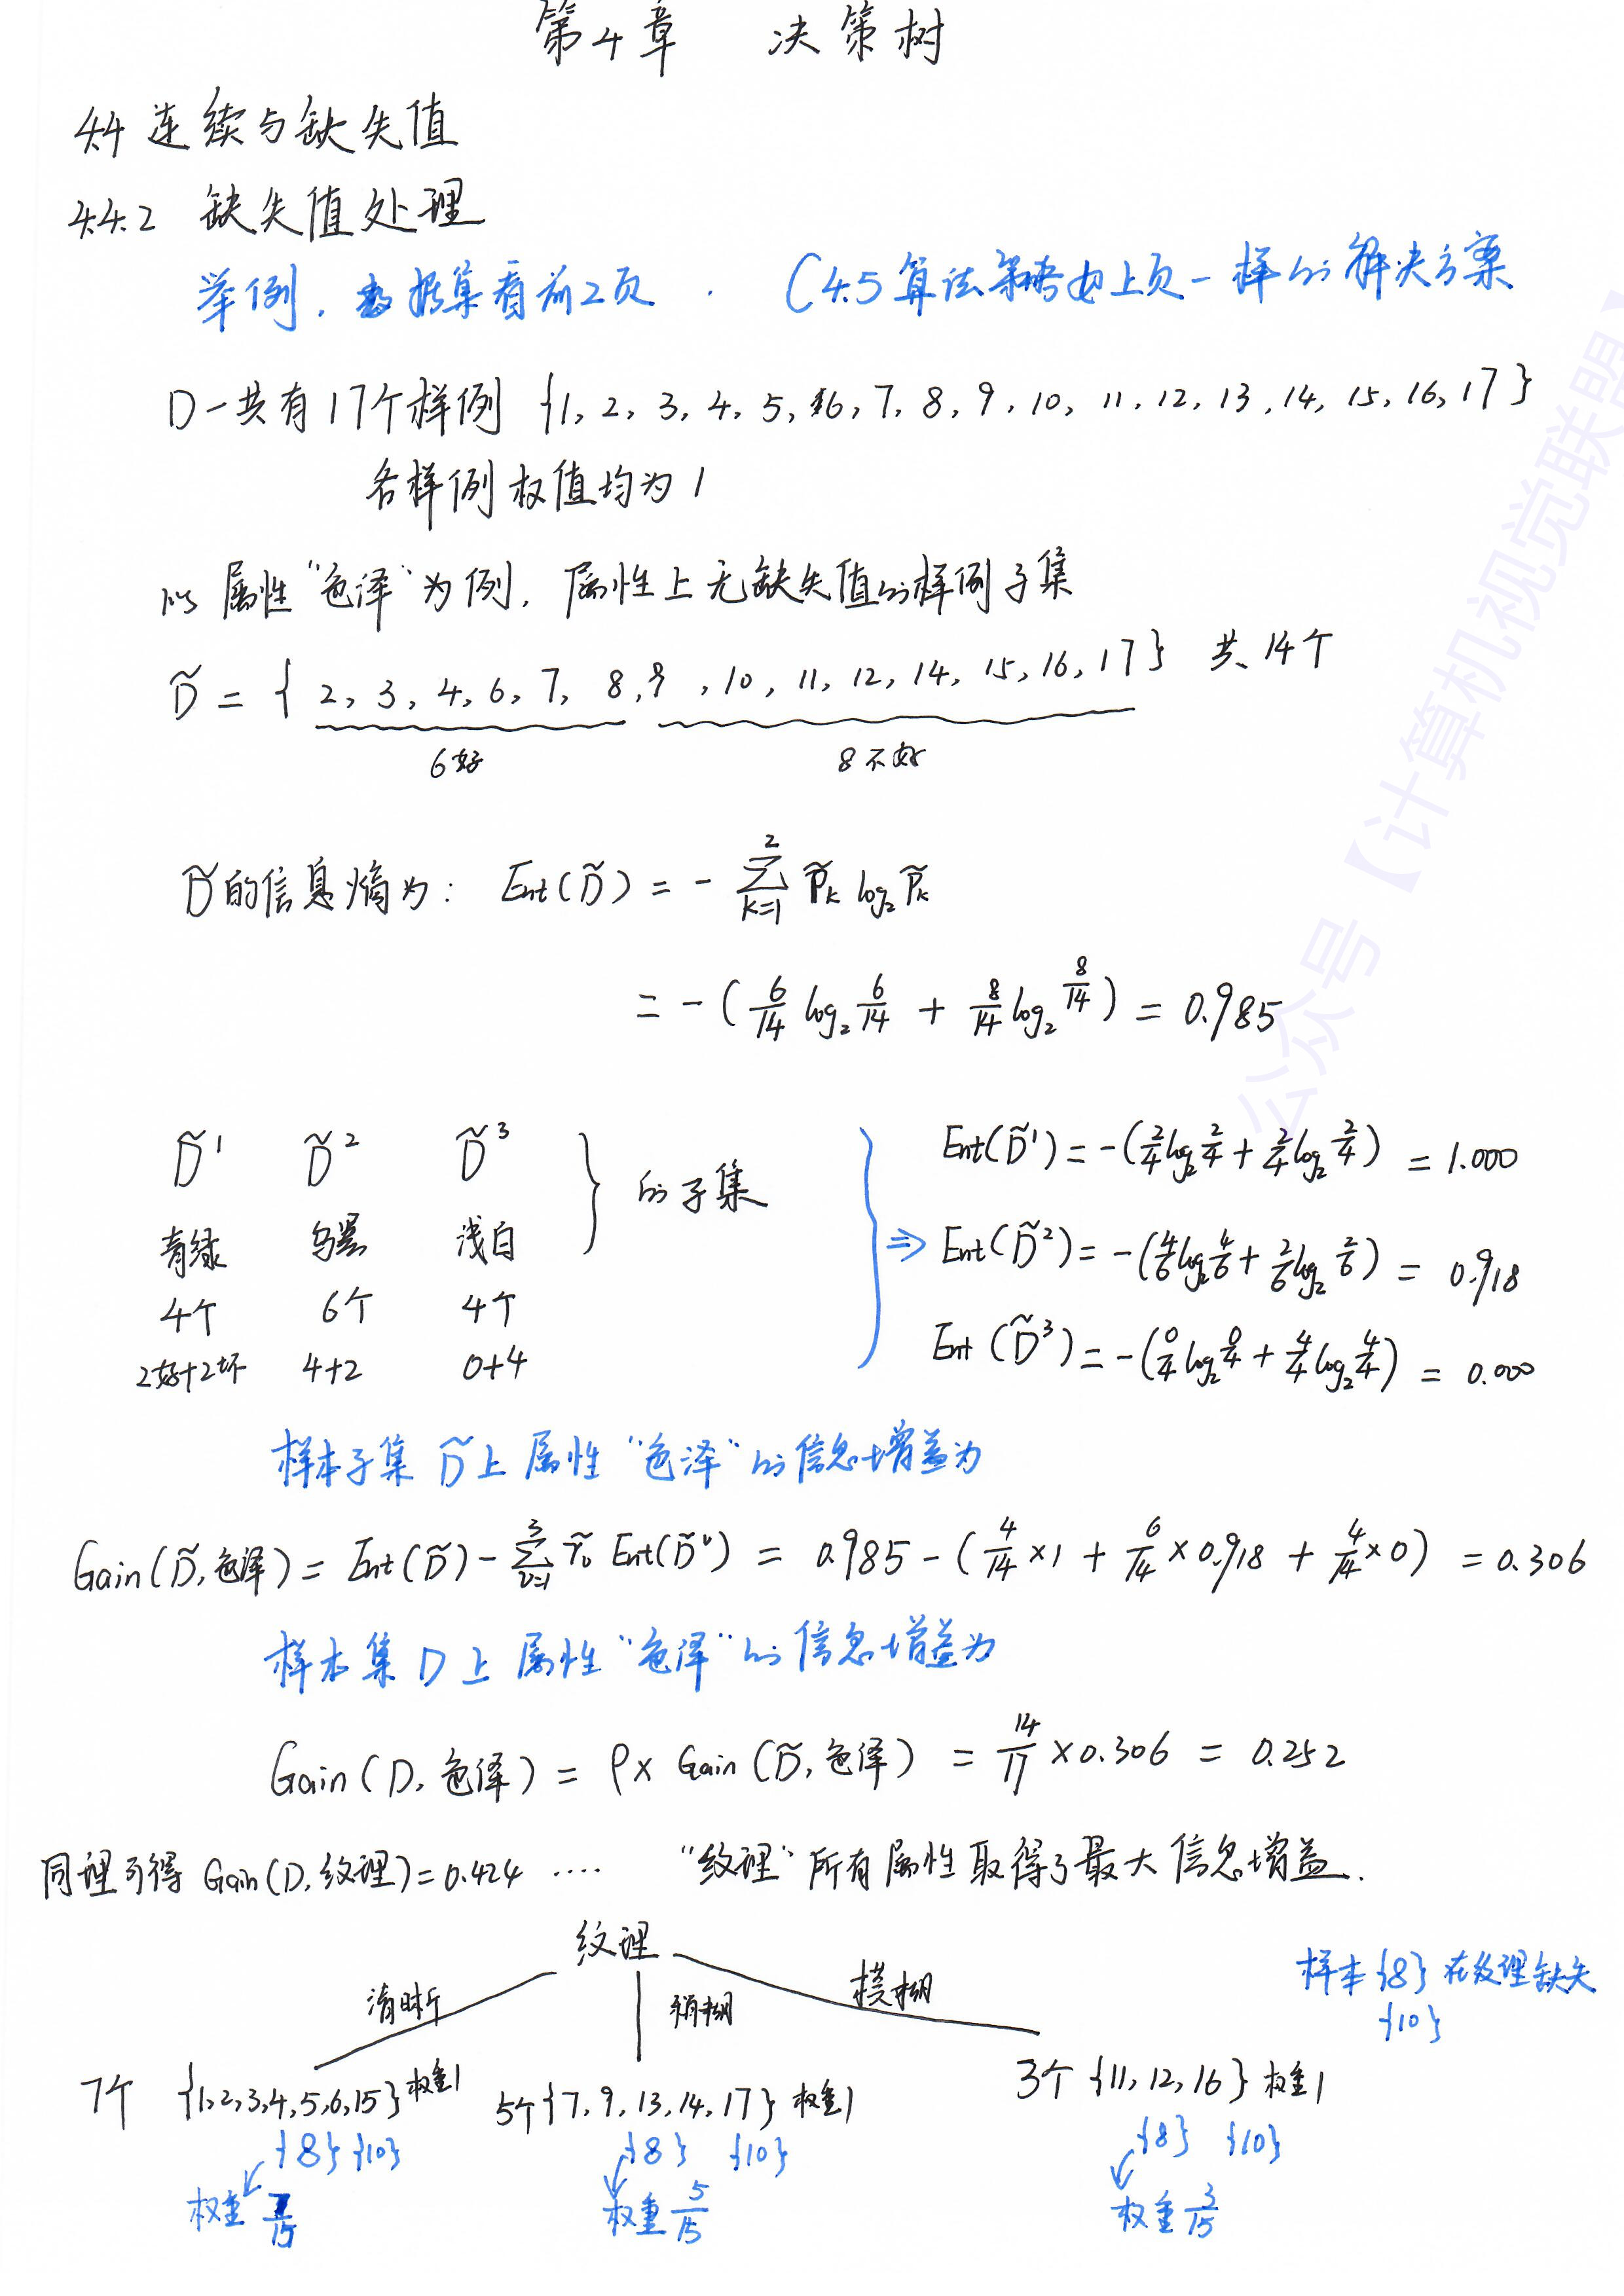 第4章 决策树
4.4 连续与缺失值
4.4.2 缺失值处理
举例，数据集看前2页．
C4.5算法 如上页一样的解决方案
D一共有17个样例 {1, 2, 3, 4, 5, 6, 7, 8, 9, 10, 11, 12, 13, 14, 15, 16, 17}
各样例权值均为1
以属性"色泽"为例，属性上无缺失值的样例子集
D̃ = { 2, 3, 4, 6, 7, 8, 9, 10, 11, 12, 14, 15, 16, 17} 共14个
6好 8不好
D̃的信息熵为: Ent(D̃) = - ∑_{k=1}^{2} p̃_k log₂ p̃_k
= -( 6/14 log₂ 6/14 + 8/14 log₂ 8/14 ) = 0.985
D̃¹ D̃² D̃³ } 的子集
青绿 乌黑 浅白
4个 6个 4个
2好+2坏 4+2 0+4
⇒ Ent(D̃¹) = -(2/4 log₂ 2/4 + 2/4 log₂ 2/4) = 1.000
Ent(D̃²) = -(4/6 log₂ 4/6 + 2/6 log₂ 2/6) = 0.918
Ent(D̃³) = -(0/4 log₂ 0/4 + 4/4 log₂ 4/4) = 0.000
样本子集 D̃上属性"色泽"的信息增益为
Gain(D̃, 色泽) = Ent(D̃) - ∑_{v=1}^{3} r̃_v Ent(D̃ᵛ) = 0.985 - ( 4/14 ×1 + 6/14 ×0.918 + 4/14 ×0) = 0.306
样本集D上属性"色泽"的信息增益为
Gain(D, 色泽) = ρ× Gain(D̃, 色泽) = 14/17 ×0.306 = 0.252
同理可得 Gain(D, 纹理)=0.424 ···· "纹理"所有属性取得了最大信息增益.
纹理
清晰 稍糊 模糊
样本{8}在纹理缺失
{10}
7个 {1,2,3,4,5,6,15}权重1
5个{7, 9, 13, 14, 17} 权重1
3个 {11, 12, 16} 权重1
{8} {10}
{8} {10}
{8} {10}
权重 7/15
权重 5/15
权重 3/15
公众号【计算机视觉联盟】